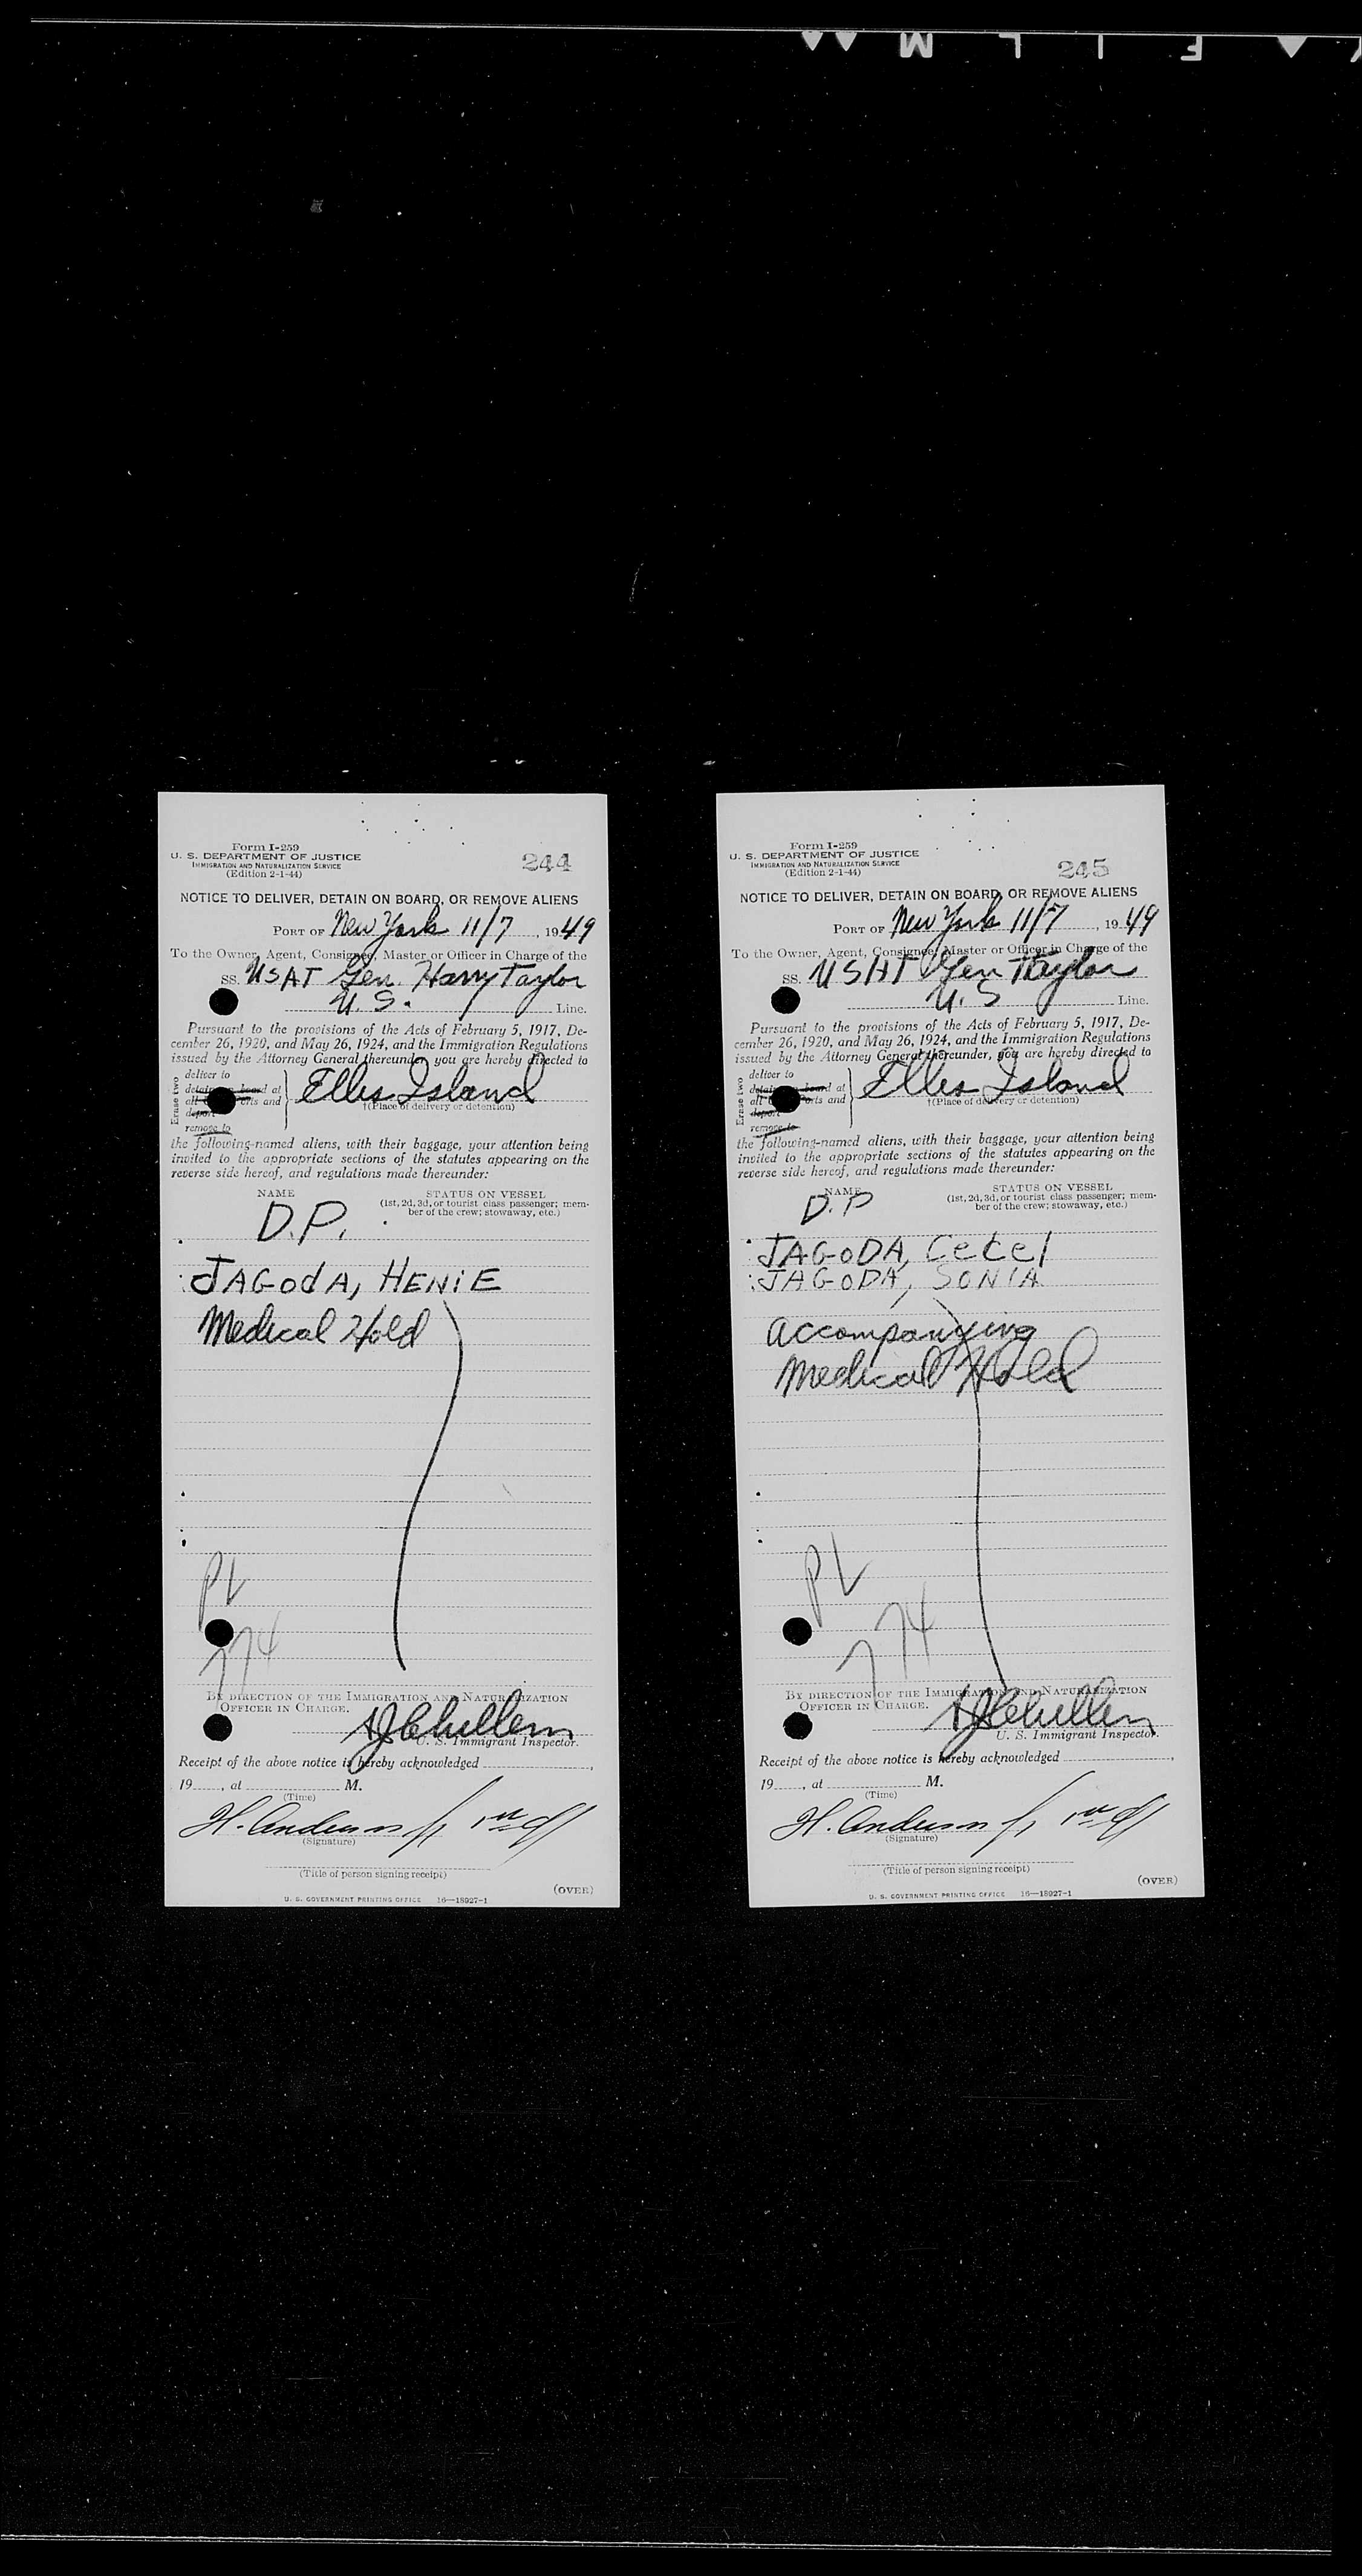 F I L M
Form I-259
U. S. DEPARTMENT OF JUSTICE
IMMIGRATION AND NATURALIZATION SERVICE
(Edition 2-1-44)
244
NOTICE TO DELIVER, DETAIN ON BOARD, OR REMOVE ALIENS
PORT OF New York 11/7, 1949
To the Owner, Agent, Consignee, Master or Officer in Charge of the
SS. USAT Gen. Harry Taylor
U.S. Line.
Pursuant to the provisions of the Acts of February 5, 1917, De-
cember 26, 1920, and May 26, 1924, and the Immigration Regulations
issued by the Attorney General thereunder you are hereby directed to
Erase two
deliver to
detain on board at
all ports and
deport
remove to
Ellis Island
†(Place of delivery or detention)
the following-named aliens, with their baggage, your attention being
invited to the appropriate sections of the statutes appearing on the
reverse side hereof, and regulations made thereunder:
NAME
STATUS ON VESSEL
(1st, 2d, 3d, or tourist class passenger; mem-
ber of the crew; stowaway, etc.)
D.P.
JAGODA, HENIE
Medical Hold
PL
774
BY DIRECTION OF THE IMMIGRATION AND NATURALIZATION
OFFICER IN CHARGE.
U. S. Immigrant Inspector.
Receipt of the above notice is hereby acknowledged
19, at M.
(Time)
H. Anderson
(Signature)
(Title of person signing receipt)
(OVER)
U. S. GOVERNMENT PRINTING OFFICE 16—18927-1
Form I-259
U. S. DEPARTMENT OF JUSTICE
IMMIGRATION AND NATURALIZATION SERVICE
(Edition 2-1-44)
245
NOTICE TO DELIVER, DETAIN ON BOARD, OR REMOVE ALIENS
PORT OF New York 11/7, 1949
To the Owner, Agent, Consignee, Master or Officer in Charge of the
SS. USAT Gen Taylor
U.S Line.
Pursuant to the provisions of the Acts of February 5, 1917, De-
cember 26, 1920, and May 26, 1924, and the Immigration Regulations
issued by the Attorney General thereunder, you are hereby directed to
Erase two
deliver to
detain on board at
all ports and
deport
remove to
Ellis Island
†(Place of delivery or detention)
the following-named aliens, with their baggage, your attention being
invited to the appropriate sections of the statutes appearing on the
reverse side hereof, and regulations made thereunder:
NAME
STATUS ON VESSEL
(1st, 2d, 3d, or tourist class passenger; mem-
ber of the crew; stowaway, etc.)
D.P
JAGODA, Cetel
JAGODA, SONIA
accompanying
Medical Hold
PL
774
BY DIRECTION OF THE IMMIGRATION AND NATURALIZATION
OFFICER IN CHARGE.
U. S. Immigrant Inspector.
Receipt of the above notice is hereby acknowledged
19, at M.
(Time)
H. Anderson
(Signature)
(Title of person signing receipt)
(OVER)
U. S. GOVERNMENT PRINTING OFFICE 16—18927-1